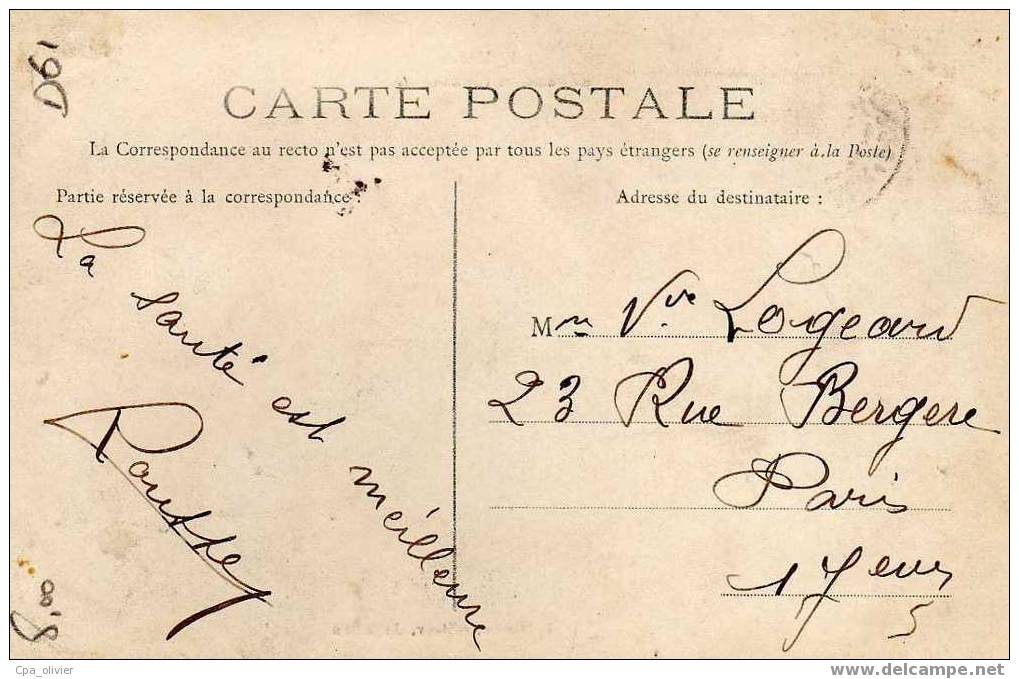 D61
CARTE POSTALE
La Correspondance au recto n'est pas acceptée par tous les pays étrangers (se renseigner à la Poste)
Partie réservée à la correspondance :
Adresse du destinataire :
La
santé
est
meilleure
Mme Vve Logeard
23 Rue Bergere
Paris
5
8,00
Cpa_olivier
www.delcampe.net